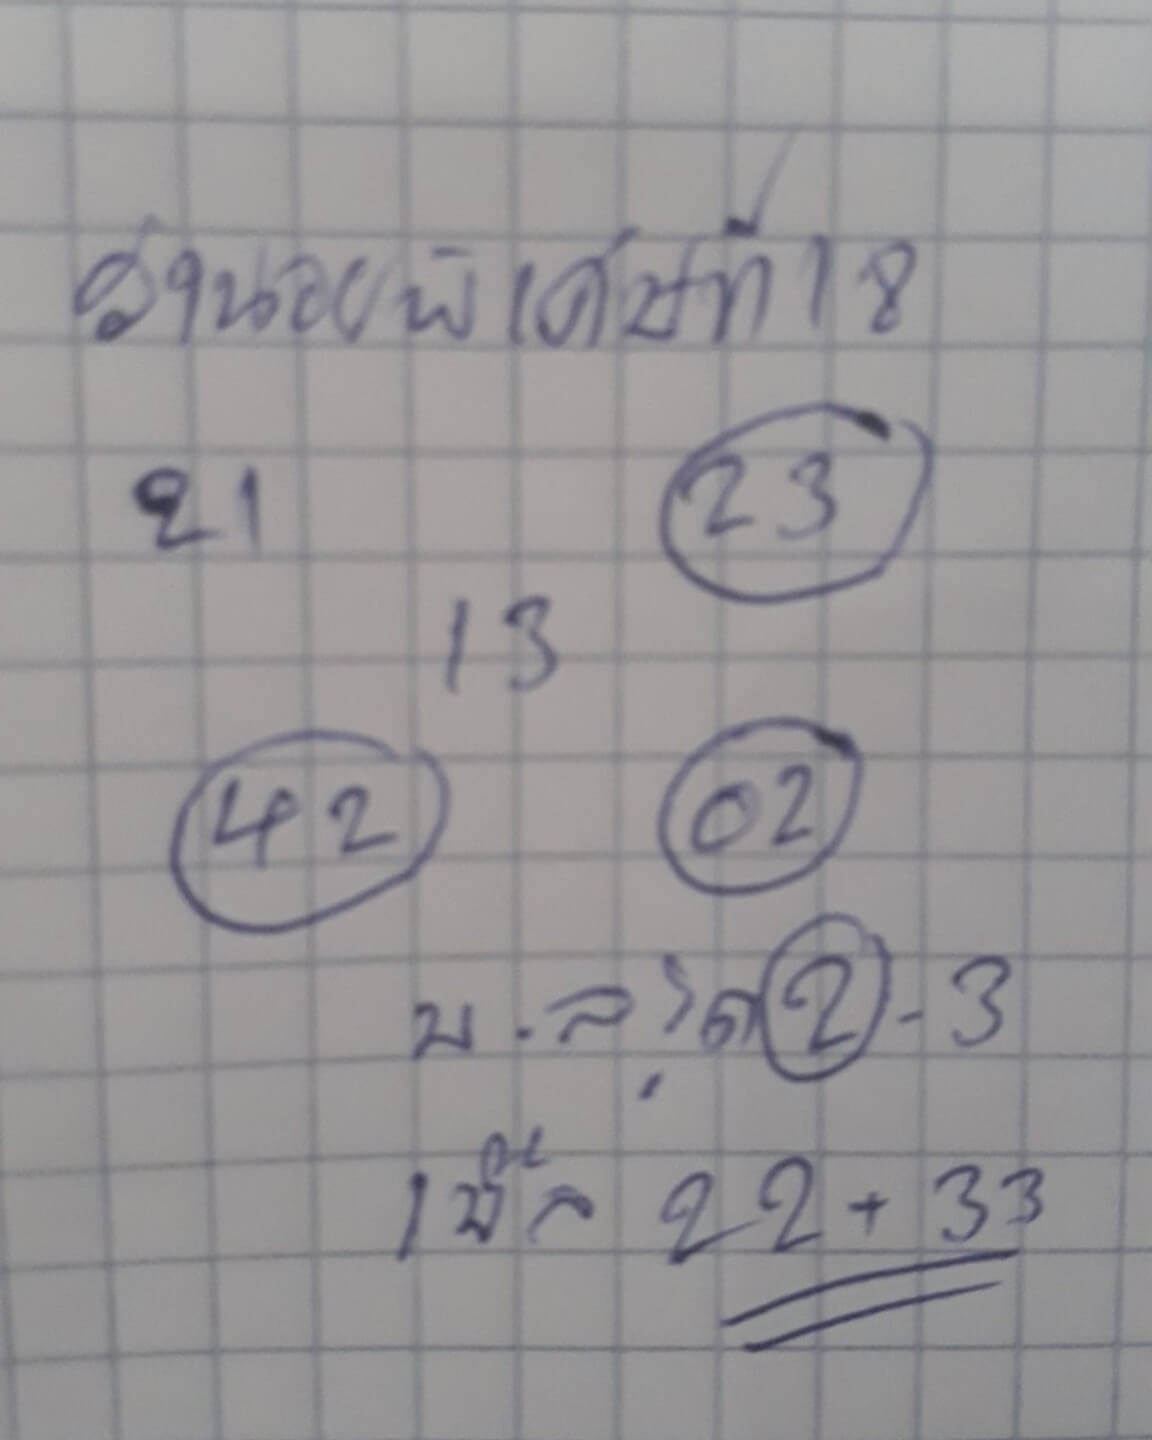 ฮานอยพิเศษที่18
21 23
13
42 02
น.สุด 2-3
เบิ้ล 22+33